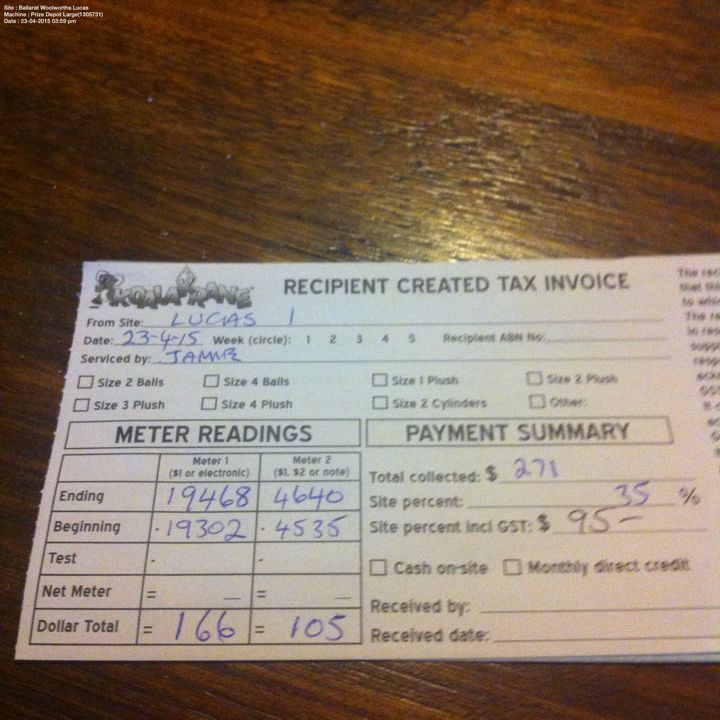 Site : Ballarat Woolworths Lucas
Machine : Prize Depot Large(1305731)
Date : 23-04-2015 03:59 pm
KOALA KRANE
RECIPIENT CREATED TAX INVOICE
From Site: LUCAS 1
Date: 23-4-15 Week (circle): 1 2 3 4 5 Recipient ABN No:
Serviced by:
Size 2 Balls Size 4 Balls Size 1 Plush Size 2 Plush
Size 3 Plush Size 4 Plush Size 2 Cylinders Other:
METER READINGS
Meter 1 Meter 2
($1 or electronic) ($1, $2 or note)
Ending 19468 4640
Beginning - 19302 - 4535
Test - -
Net Meter = — = —
Dollar Total = 166 = 105
PAYMENT SUMMARY
Total collected: $ 271
Site percent: 35 %
Site percent incl GST: $ 95 -
Cash on-site Monthly direct credit
Received by:
Received date:
The
that
to
The